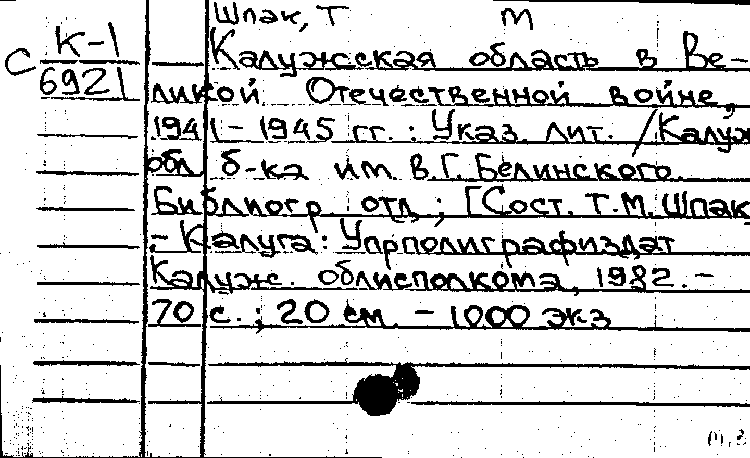 Шпак, Т М
С К-1
6921
Калужская область в Ве-
ликой Отечественной войне,
1941-1945 гг. : Указ. лит. / Калуж
обл б-ка им. В. Г. Белинского.
Библиогр отд ; [Сост. Т. М. Шпак
.- Калуга : Упрполиграфиздат
Калуж. облисполкома, 1982. -
70 с. ; 20 см. - 1000 экз